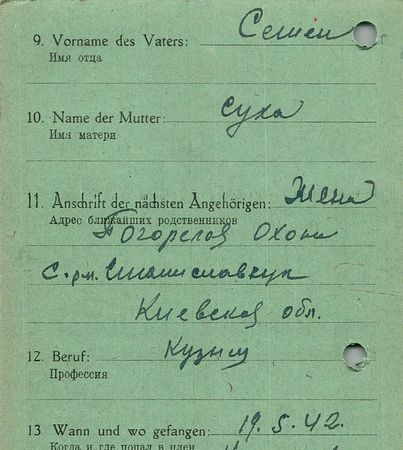 9. Vorname des Vaters: Семен
Имя отца
10. Name der Mutter: Суха
Имя матери
11. Anschrift der nächsten Angehörigen: Жена
Адрес ближайших родственников
Погорелов
с.
Киевская обл.
12. Beruf: Кузнец
Профессия
13 Wann und wo gefangen: 19.5.42.
Когда и где попал в плен